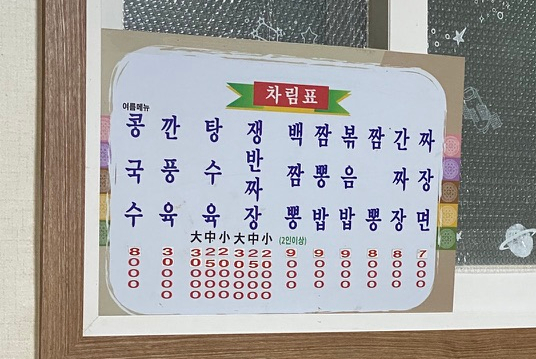 차림표
짜장면 7000
간짜장 8000
짬뽕 8000
볶음밥 9000
짬뽕밥 9000
백짬뽕 9000
(2인이상)
쟁반짜장
大中小
탕수육
大中小
깐풍육 30000
여름메뉴
콩국수 8000